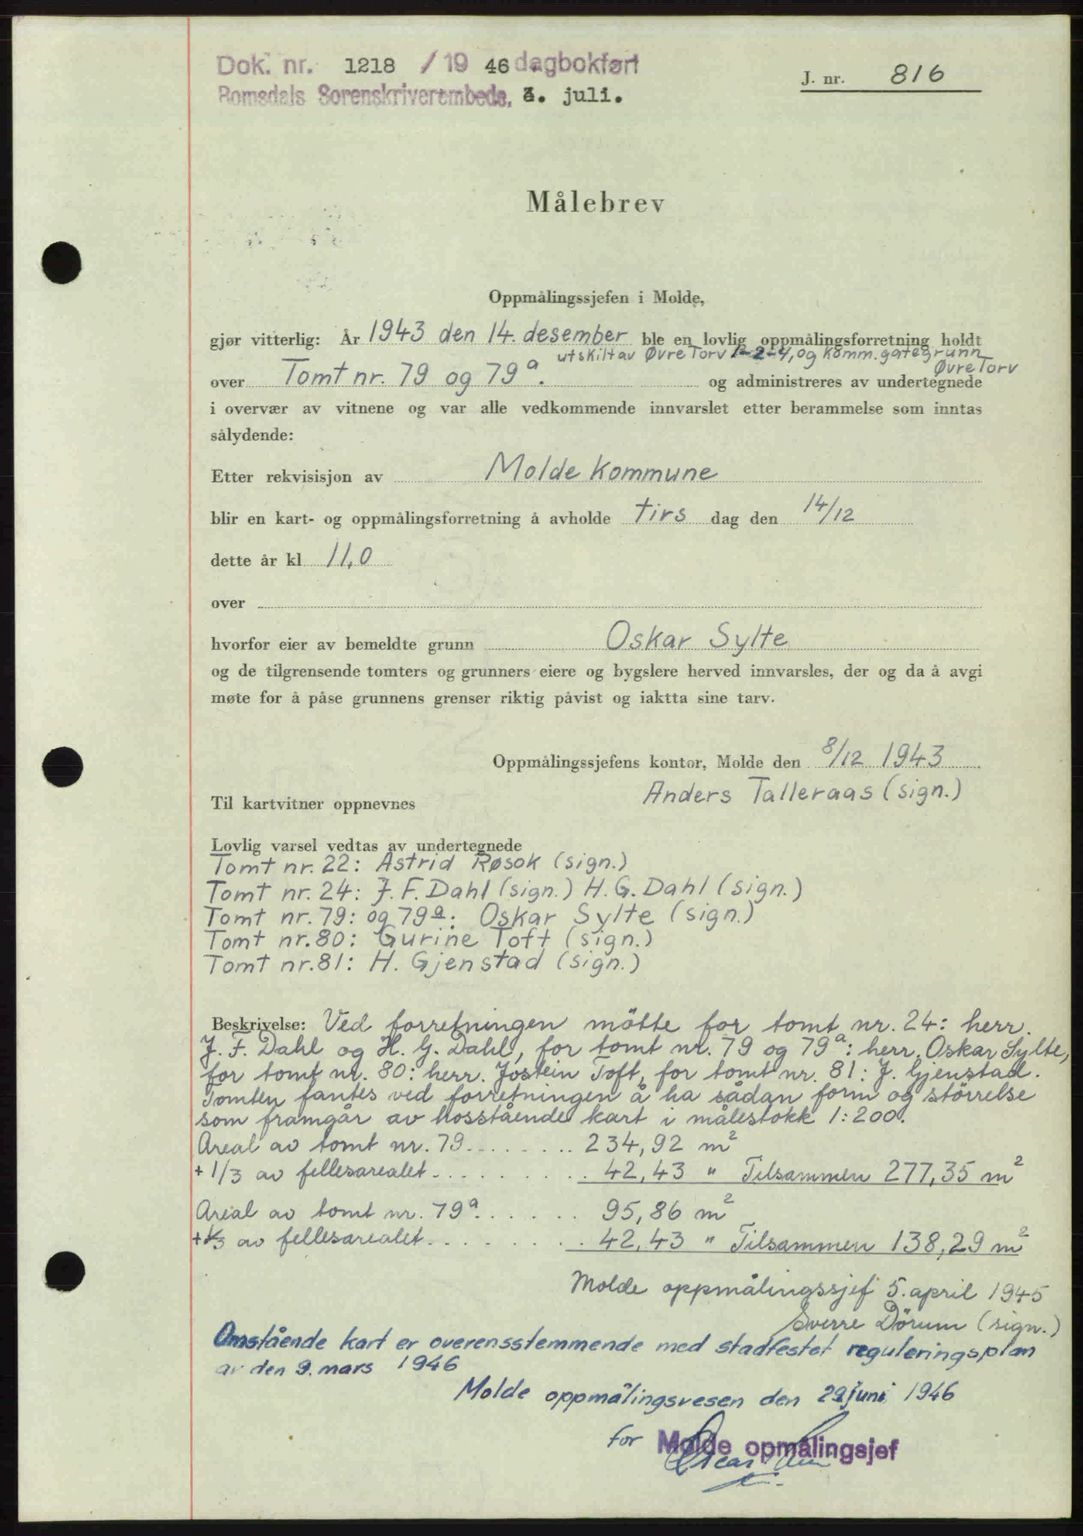 Dok. nr. 1218 / 19 46 dagbokført
Romsdals Sorenskriverembede, 3. juli.
J. nr. 816
Målebrev
Oppmålingssjefen i Molde,
gjør vitterlig: År 1943 den 14. desember ble en lovlig oppmålingsforretning holdt
utskilt av Øvre Torv 1-2-4, og komm. gategrunn
Øvre Torv
over Tomt nr. 79 og 79a. og administreres av undertegnede
i overvær av vitnene og var alle vedkommende innvarslet etter berammelse som inntas
sålydende:
Etter rekvisisjon av Molde Kommune
blir en kart- og oppmålingsforretning å avholde tirs dag den 14/12
dette år kl 11,0
over
hvorfor eier av bemeldte grunn Oskar Sylte
og de tilgrensende tomters og grunners eiere og bygslere herved innvarsles, der og da å avgi
møte for å påse grunnens grenser riktig påvist og iaktta sine tarv.
Oppmålingssjefens kontor, Molde den 8/12 1943
Anders Talleraas (sign.)
Til kartvitner oppnevnes
Lovlig varsel vedtas av undertegnede
Tomt nr. 22: Astrid Røsok (sign.)
Tomt nr. 24: J. F. Dahl (sign.) H. G. Dahl (sign.)
Tomt nr. 79: og 79a: Oskar Sylte (sign.)
Tomt nr. 80: Gurine Toft (sign.)
Tomt nr. 81: H. Gjenstad (sign.)
Beskrivelse: Ved forretningen mötte for tomt nr. 24: herr.
J. F. Dahl og H. G. Dahl, for tomt nr. 79 og 79a: herr. Oskar Sylte,
for tomt nr. 80: herr. Jostein Toft, for tomt nr. 81: J. Gjenstad.
Tomten fantes ved forretningen å ha sådan form og störrelse
som framgår av hosstående kart i målestokk 1:200.
Areal av tomt nr. 79........ 234,92 m²
+ 1/3 av fellesarealet.......... 42,43 " Tilsammen 277,35 m²
Areal av tomt nr. 79a...... 95,86 m²
+ 1/3 av fellesarealet.......... 42,43 " Tilsammen 138,29 m²
Molde oppmålingssjef 5. april 1945
Sverre Dörum (sign.)
Omstående kart er overensstemmende med stadfestet reguleringsplan
av den 9. mars 1946
Molde oppmålingsvesen den 29 juni 1946
for Molde opmålingsjef